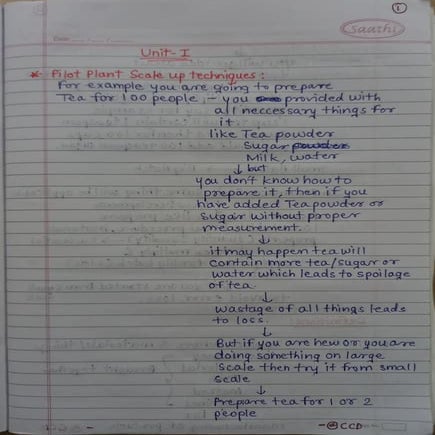 1
Saathi
Date
Unit-I
* Pilot Plant Scale up techniques :
For example you are going to prepare
Tea for 100 people, - you provided with
all neccessary things for
it.
like Tea powder
Sugar powder
Milk, water
↓ but
you don't know how to
prepare it, then if you
have added Tea powder or
Sugar without proper
measurement.
↓
it may happen tea will
contain more tea/sugar or
water which leads to spoilage
of tea.
↓
wastage of all things leads
to loss.
↓
But if you are new or you are
doing something on large
Scale then try it from small
scale
↓
Prepare tea for 1 or 2
people
- @CCD -